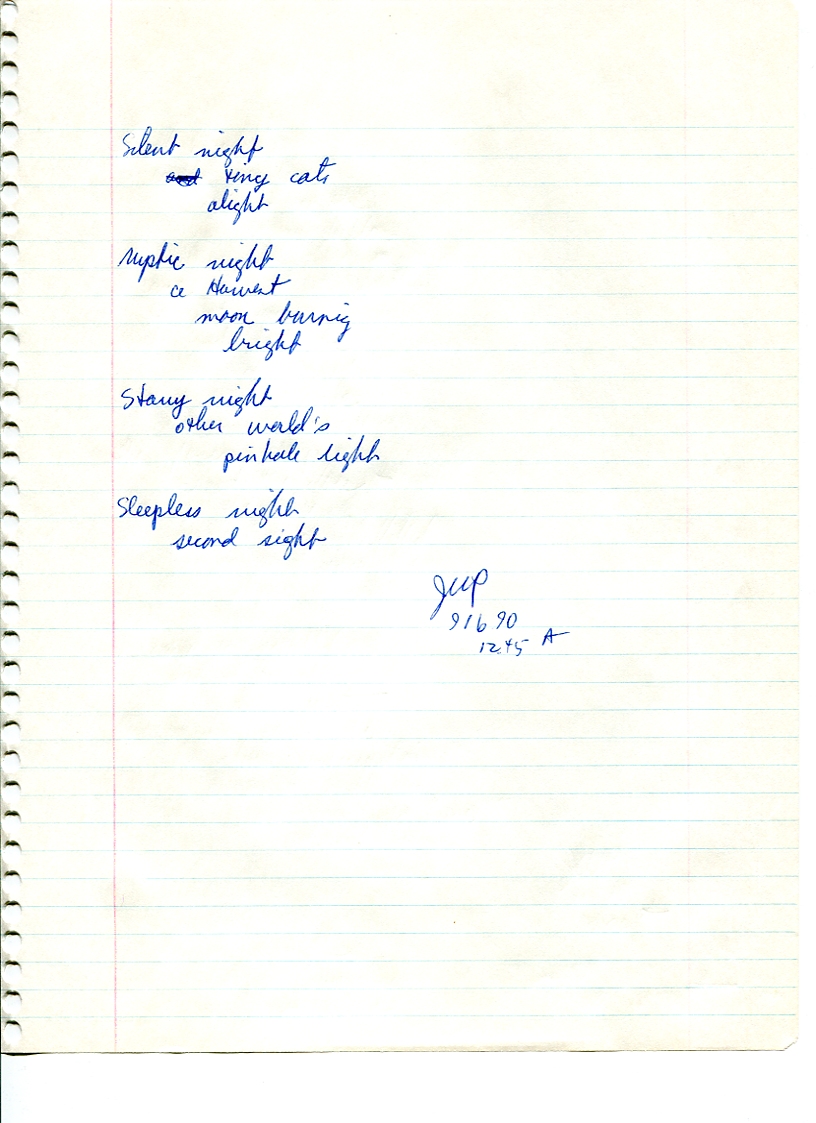 Silent night
and tiny cats
alight
Mystic night
a Harvest
moon burnig
bright
Starry night
other world's
pinhole light
Sleepless night
second sight
JWP
91690
12:45 A